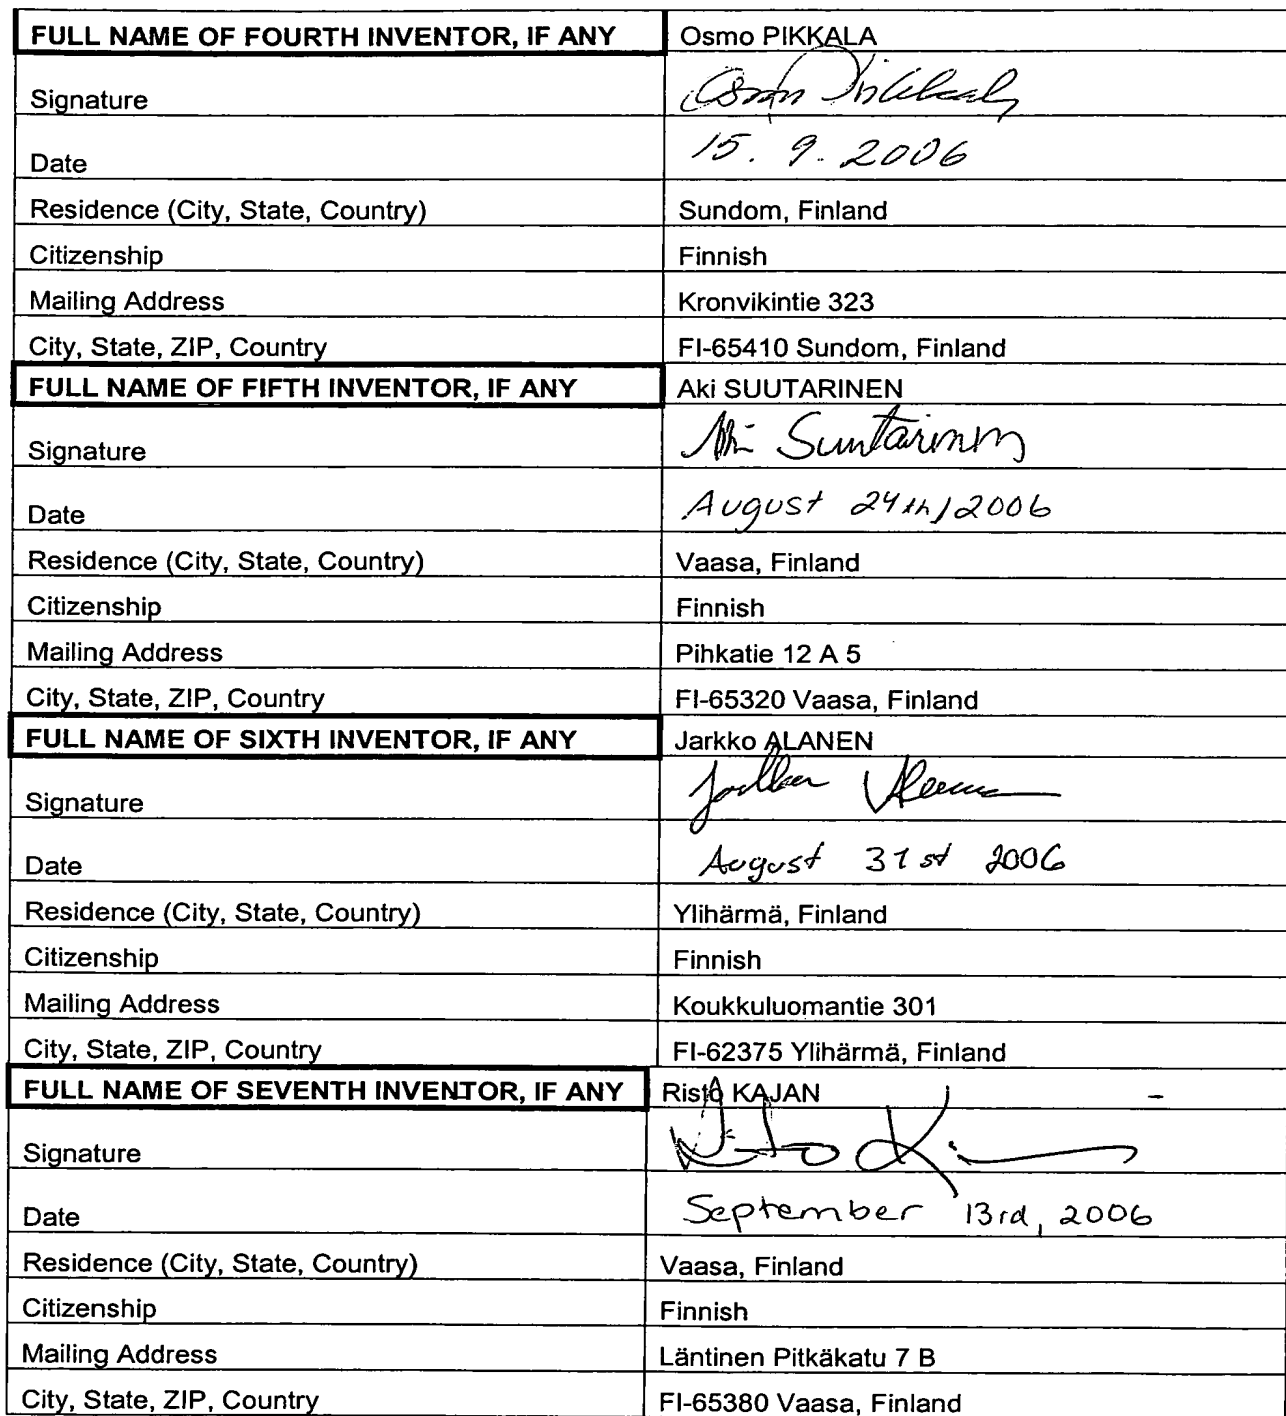 FULL NAME OF FOURTH INVENTOR, IF ANY Osmo PIKKALA
Signature Osmo Pikkala
Date 15. 9. 2006
Residence (City, State, Country) Sundom, Finland
Citizenship Finnish
Mailing Address Kronvikintie 323
City, State, ZIP, Country FI-65410 Sundom, Finland
FULL NAME OF FIFTH INVENTOR, IF ANY Aki SUUTARINEN
Signature Aki Suutarinen
Date August 24th, 2006
Residence (City, State, Country) Vaasa, Finland
Citizenship Finnish
Mailing Address Pihkatie 12 A 5
City, State, ZIP, Country FI-65320 Vaasa, Finland
FULL NAME OF SIXTH INVENTOR, IF ANY Jarkko ALANEN
Signature Jarkko Alanen
Date August 31st 2006
Residence (City, State, Country) Ylihärmä, Finland
Citizenship Finnish
Mailing Address Koukkuluomantie 301
City, State, ZIP, Country FI-62375 Ylihärmä, Finland
FULL NAME OF SEVENTH INVENTOR, IF ANY Risto KAJAN
Signature
Date September 13rd, 2006
Residence (City, State, Country) Vaasa, Finland
Citizenship Finnish
Mailing Address Läntinen Pitkäkatu 7 B
City, State, ZIP, Country FI-65380 Vaasa, Finland